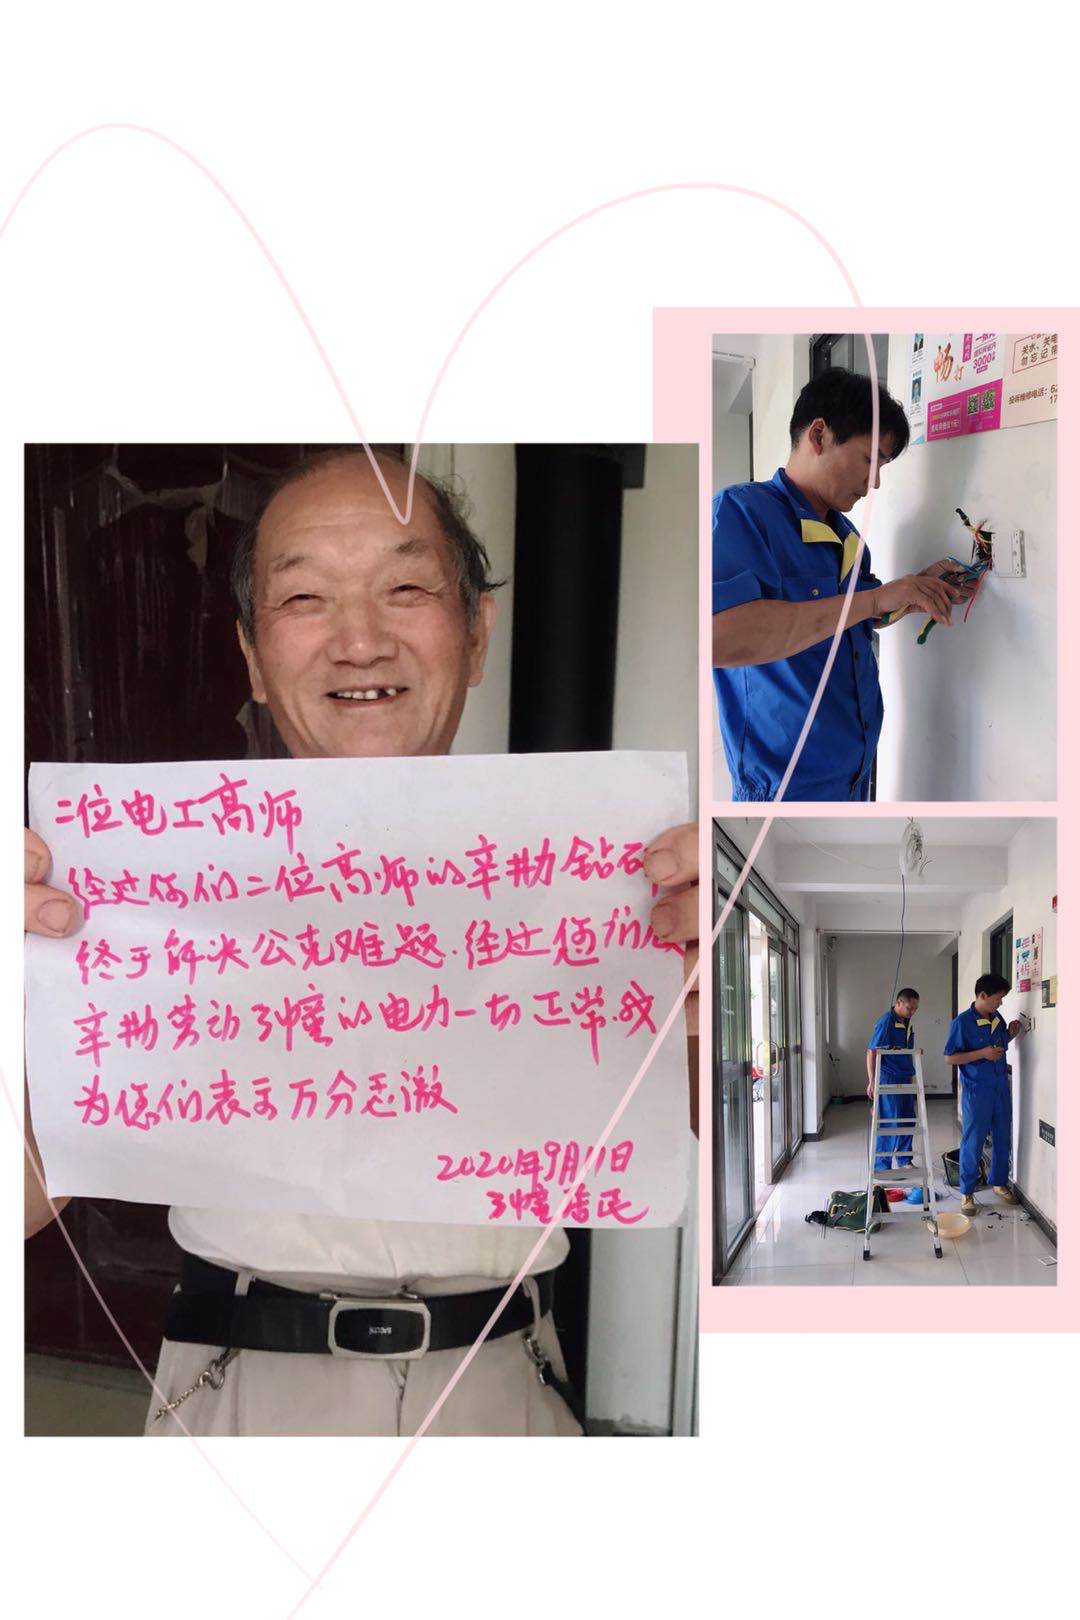 二位电工高师
经过你们二位高师的辛勤钻研
终于解决公克难题.经过您们
辛勤劳动3幢的电力一切正常.我
为您们表示万分感激
2020年9月11日
3幢居民
畅打
3000
关水、关电
勿忘记带
投诉维修电话：62
17